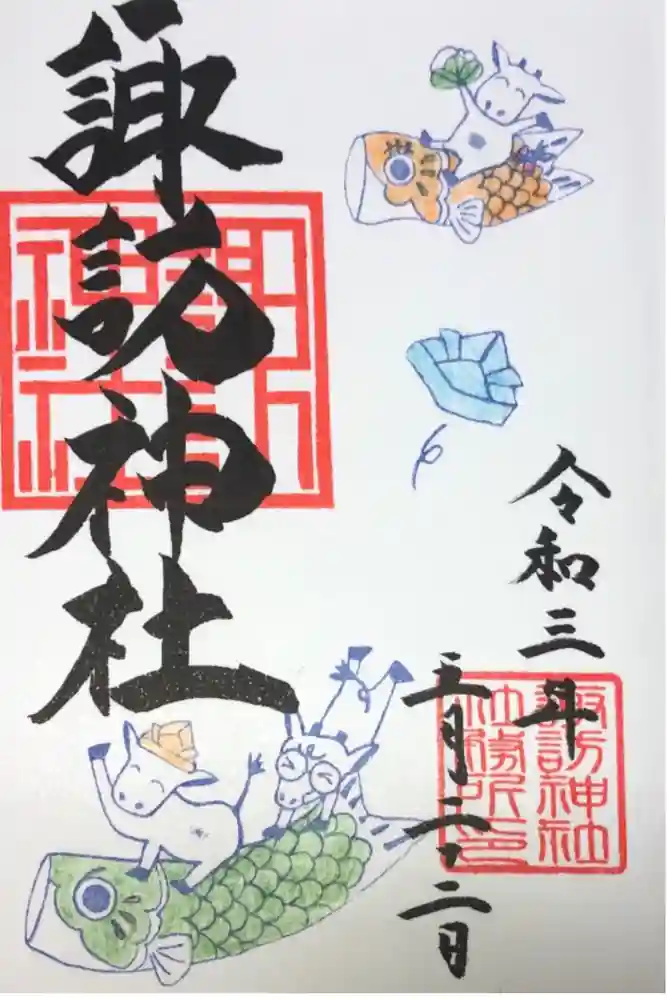 諏訪神社
令和三年
五月二十二日
諏訪神社
社務所印